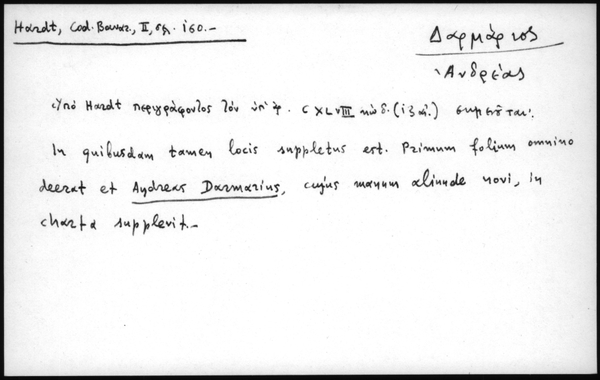 Hardt, Cod. Bavar., II, σελ. 160.-
Δαρμάριος
Ἀνδρέας
Ὑπὸ Hardt περιγράφοντος τὸν ὑπ' ἀρ. CXLVIII κώδ. (ιξ αἰ.) σημειοῦται:
In quibusdam tamen locis suppletus est. Primum folium omnino
deerat et Andreas Darmarius, cujus manum aliunde novi, in
charta supplevit.-